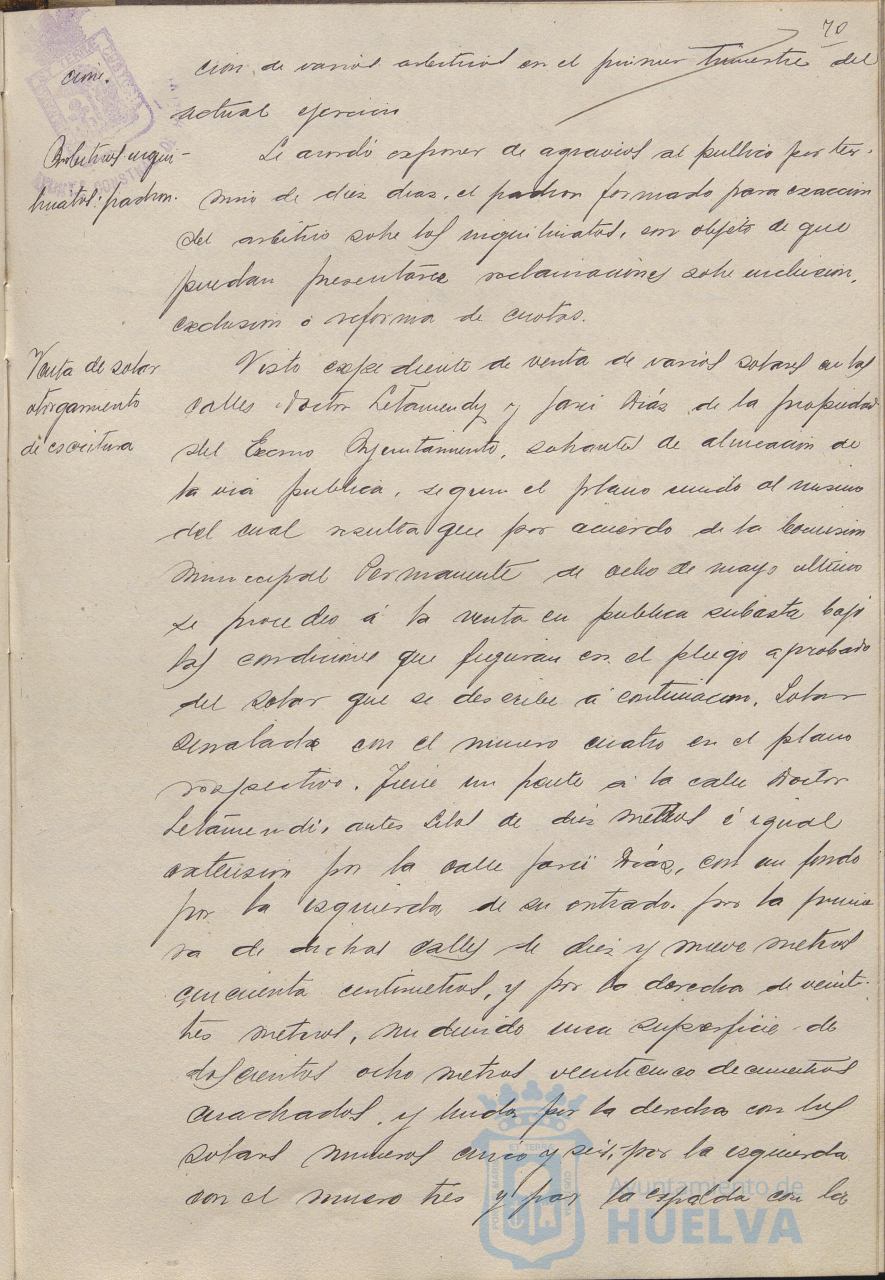 70
ción.
ción de varios arbitrios en el primer trimestre del
actual ejercicio
Arbitrios inqui-
linatos: padron.
Se acordó exponer de agravios al publico por ter-
mino de diez dias, el padron formado para exaccion
del arbitrio sobre los inquilinatos, con objeto de que
puedan presentarse reclamaciones sobre inclusion,
exclusion ó reforma de cuotas.
Venta de solar
otorgamiento
de escritura
Visto expediente de venta de varios solares en las
calles Doctor Letamendy y Garci Diaz de la propiedad
del Excmo Ayuntamiento, sobrantes de alineacion de
la via publica, segun el plano unido al mismo
del cual resulta que por acuerdo de la Comision
Municipal Permanente de ocho de mayo ultimo
se procedio á la venta en publica subasta bajo
las condiciones que figuran en el pliego aprobado
del solar que se describe á continuacion. Solar
señalado con el numero cuatro en el plano
respectivo. Tiene un frente á la calle Doctor
Letamendi, antes de diez metros é igual
extension por la calle Garci Diaz, con un fondo
por la izquierda de su entrada por la prime
ra de dichas calles de diez y nueve metros
cincuenta centimetros, y por la derecha de veinti-
tres metros, midiendo una superficie de
doscientos ocho metros veinticinco decimetros
cuadrados, y linda por la derecha con los
solares numeros cinco y seis, por la izquierda
con el numero tres y por la espalda con la
Ayuntamiento de
HUELVA